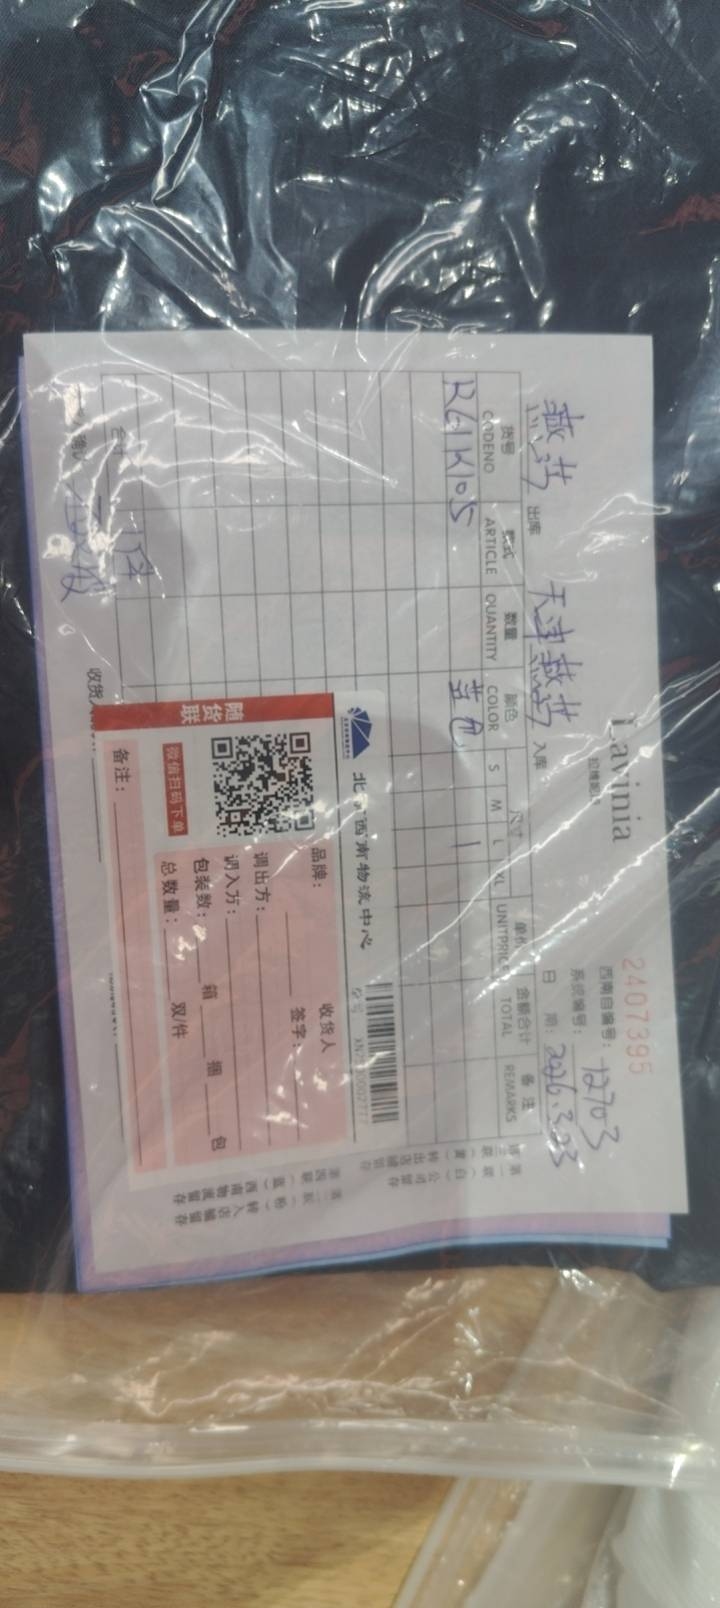 Lavinia
拉维妮娅
2407395
西南自编号: 12703
系统编号:
燕莎 出库 天津燕莎 入库
日 期: 2026.3.03
货号 款式 数量 颜色 尺寸 单价 金额合计 备注
CODENO ARTICLE QUANTITY COLOR S M L XL UNITPRICE TOTAL REMARKS
R61K105 蓝色 1
合计 1件
北京西南物流中心
随货联
微信扫码下单
品牌:
收货人
签字:
调出方:
调入方:
包装数: 箱 捆 包
总数量: 双/件
备注: